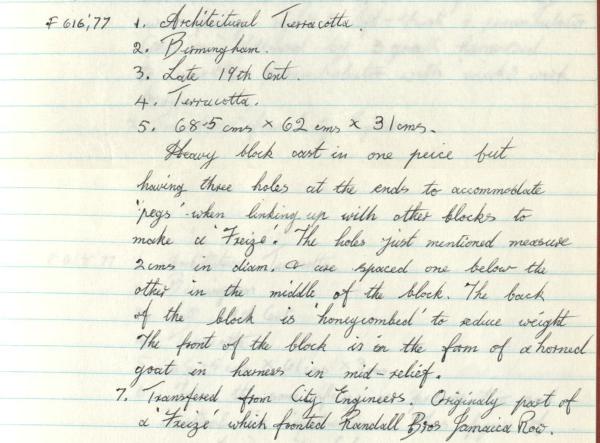 F 616'77 1. Architectural Terracotta.
2. Birmingham.
3. Late 19th Cent.
4. Terracotta.
5. 68.5 cms × 62 cms × 31 cms.
Heavy block cast in one peice but
having three holes at the ends to accommodate
'pegs' when linking up with other blocks to
make a 'Freize'. The holes just mentioned measure
2cms in diam. & are spaced one below the
other in the middle of the block. The back
of the block is 'honeycombed' to reduce weight
The front of the block is in the form of a horned
goat in harness in mid-relief.
7. Transfered from City Engineers. Originaly part of
a 'Freize' which fronted Randall Bros Jamaica Row.